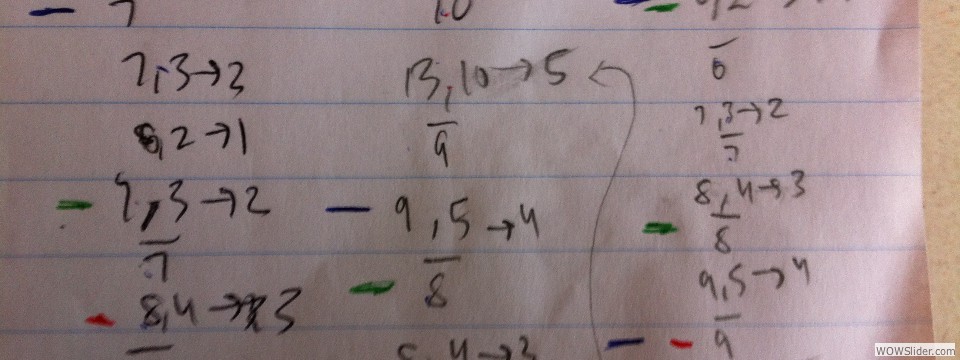 7
7,3→3
8,2→1
7,3→2
7
8,4→3
10
13,10→5
9
9,5→4
8
6
7,3→2
7
8,4→3
8
9,5→4
9
WOWSlider.com